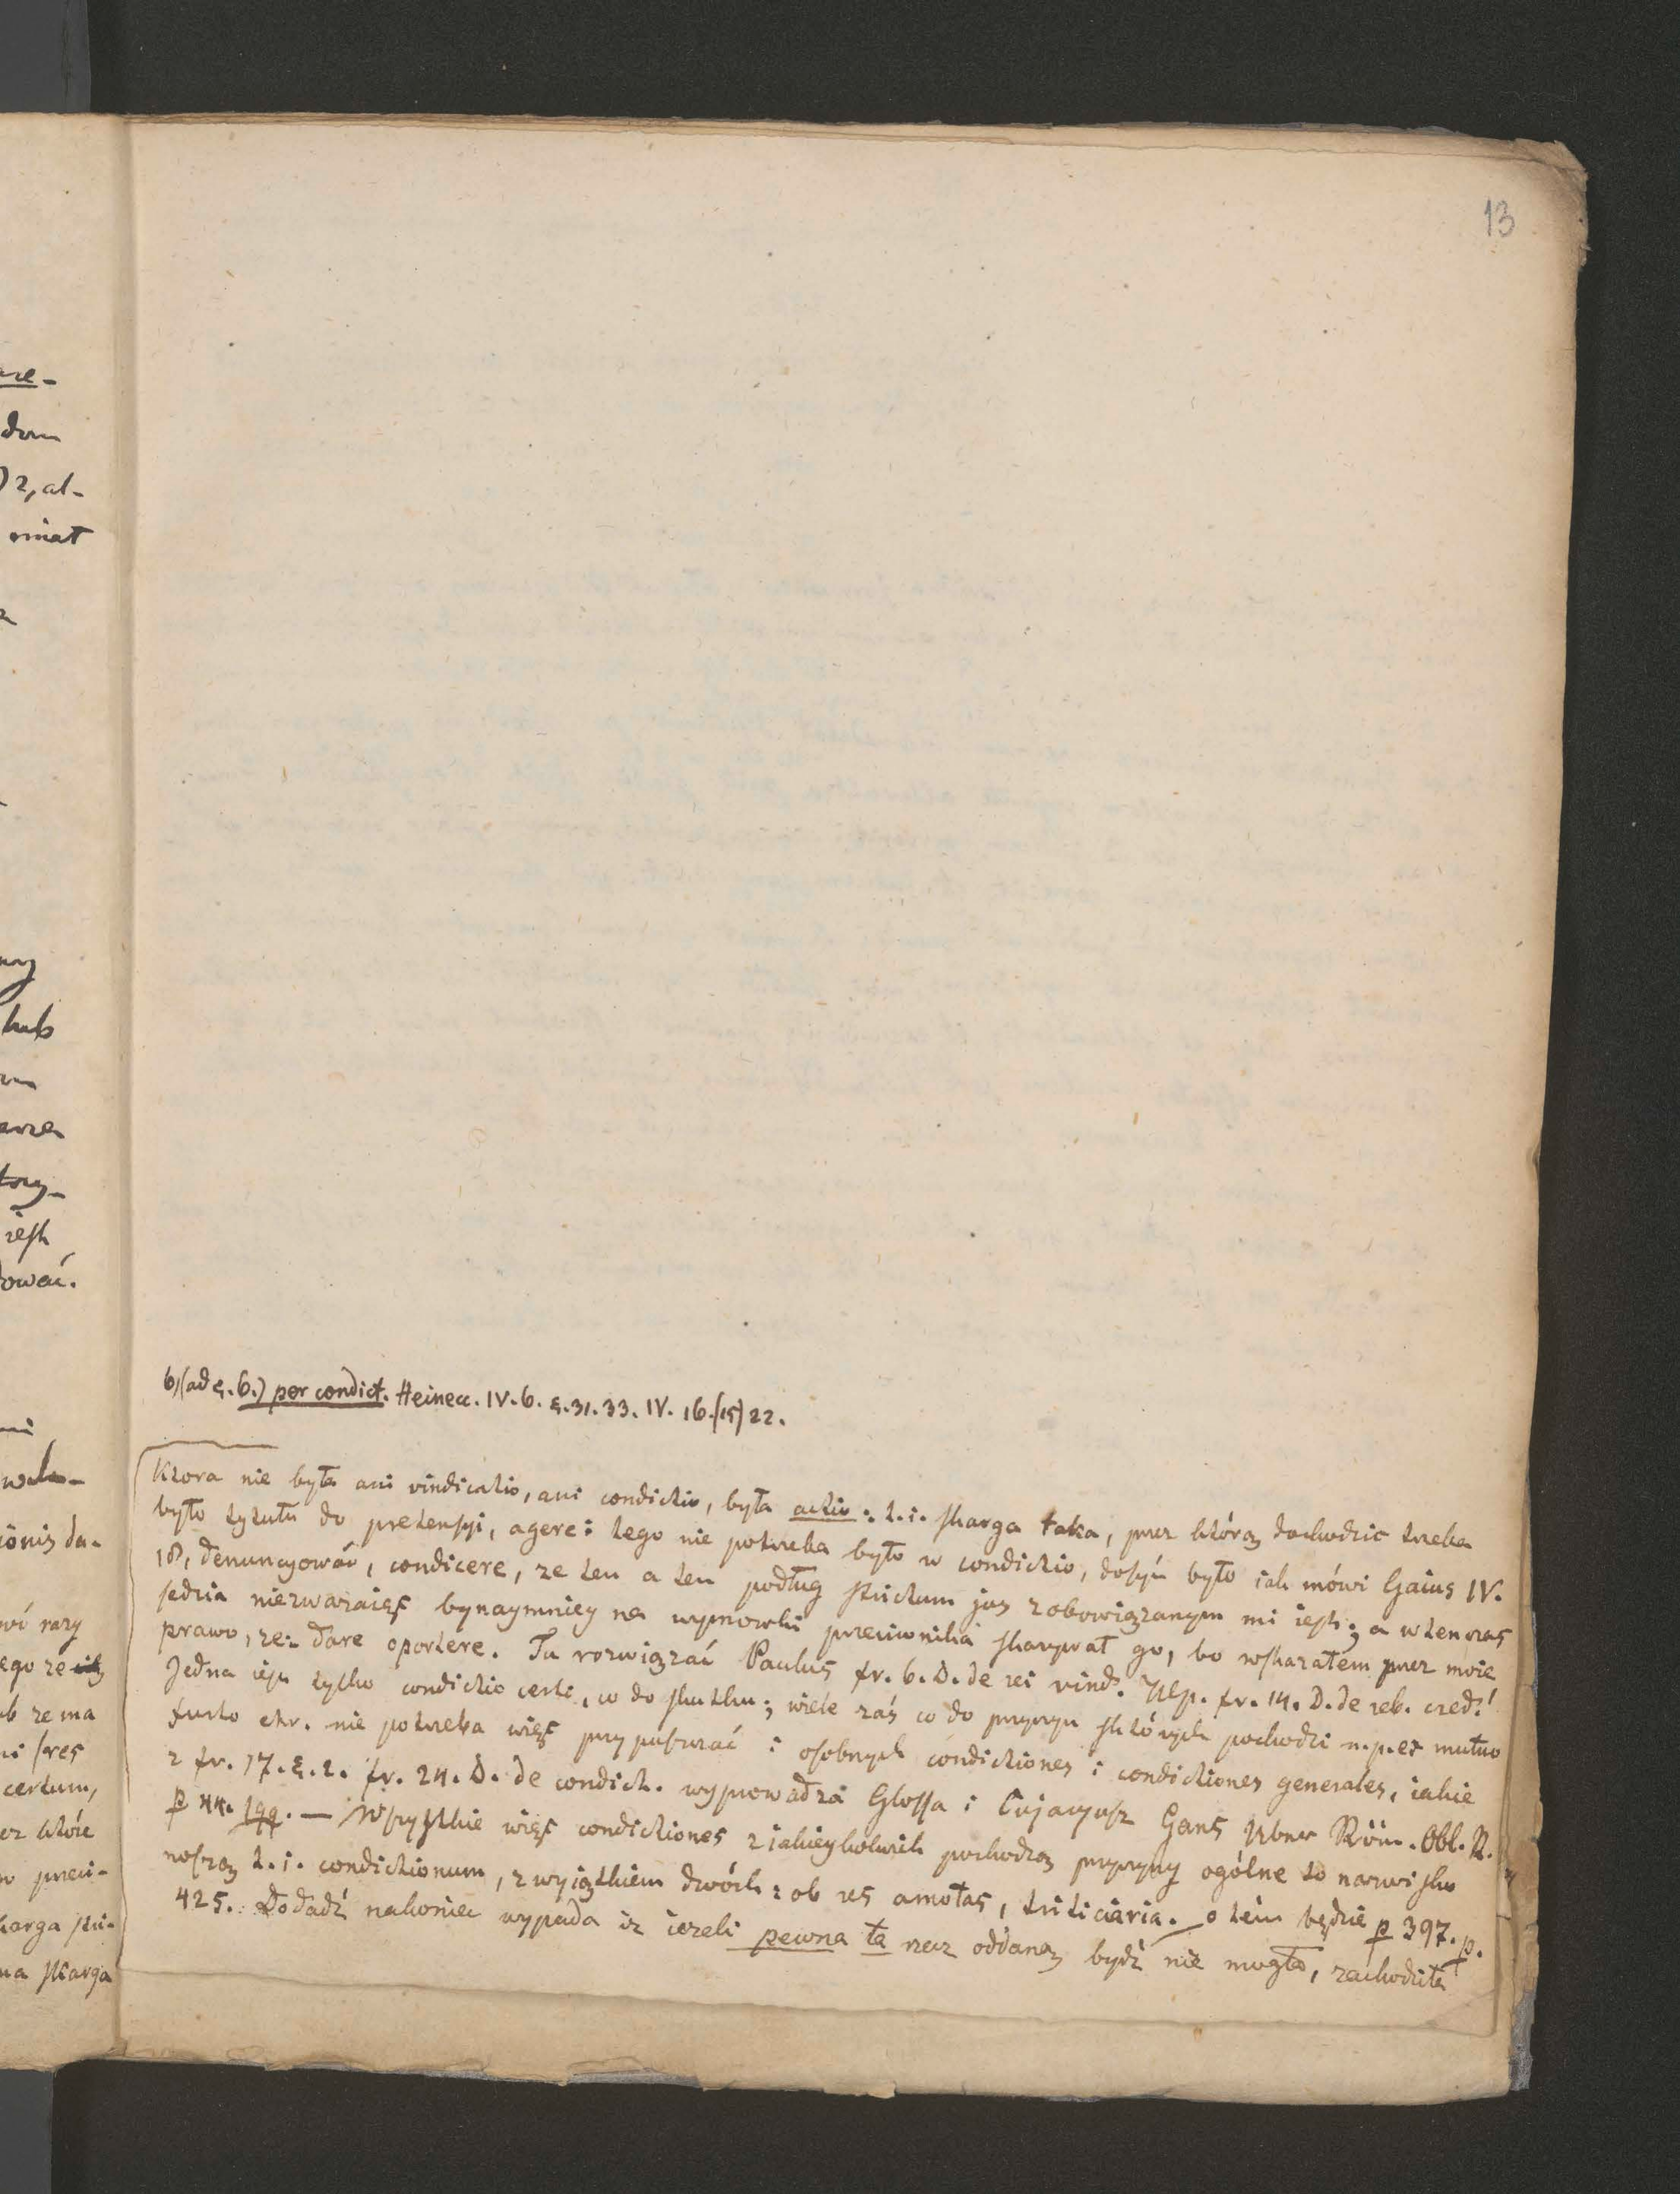 13
b) (ad §. 6.) per condict. Heinecc. IV. 6. §. 31. 33. IV. 16. (15) 22.
Ktora nie była ani vindicatio, ani condictio, była actio: t. i. skarga taka, przez którą dochodzic trzeba
było tytułu do pretensyi, agere: tego nie potrzeba było w condictio, dosyć było iak mówi Gaius IV.
18, denuncyować, condicere, ze ten a ten podług strictum jus zobowiązanym mi iest; a wtenczas
sędzia niezwazaiąc bynaymniey na wymowki przeciwnika skazywał go, bo wskazałem przez moie
prawo, ze: dare oportere. Tu rozwiązać Paulus fr. 6. D. de rei vind. Ulp. fr. 14. D. de reb. cred.!
Jedna iest tylko condictio certi, co do skutku; wiele zaś co do przyczyn których pochodzi n. p. ex mutuo
furto etc. nie potrzeba więc przypuszczać i osobnych condictiones i condictiones generales, iakie
z fr. 17. §. 2. fr. 24. D. de condict. wyprowadza Glossa i Cujacyusz Gans Uber Röm. Obl. R.
p 44. 199. — Wszystkie więc condictiones z iakieykolwiek pochodzą przyczyny ogólne to nazwisko
noszą t. i. condictionum, z wyiątkiem dwóch: ob res amotas, triticiaria. o tém będzie p 397. p.
425. Dodadź nakoniec wypada iz iezeli pewna ta rzecz oddaną bydź nie mogła, zachodziła